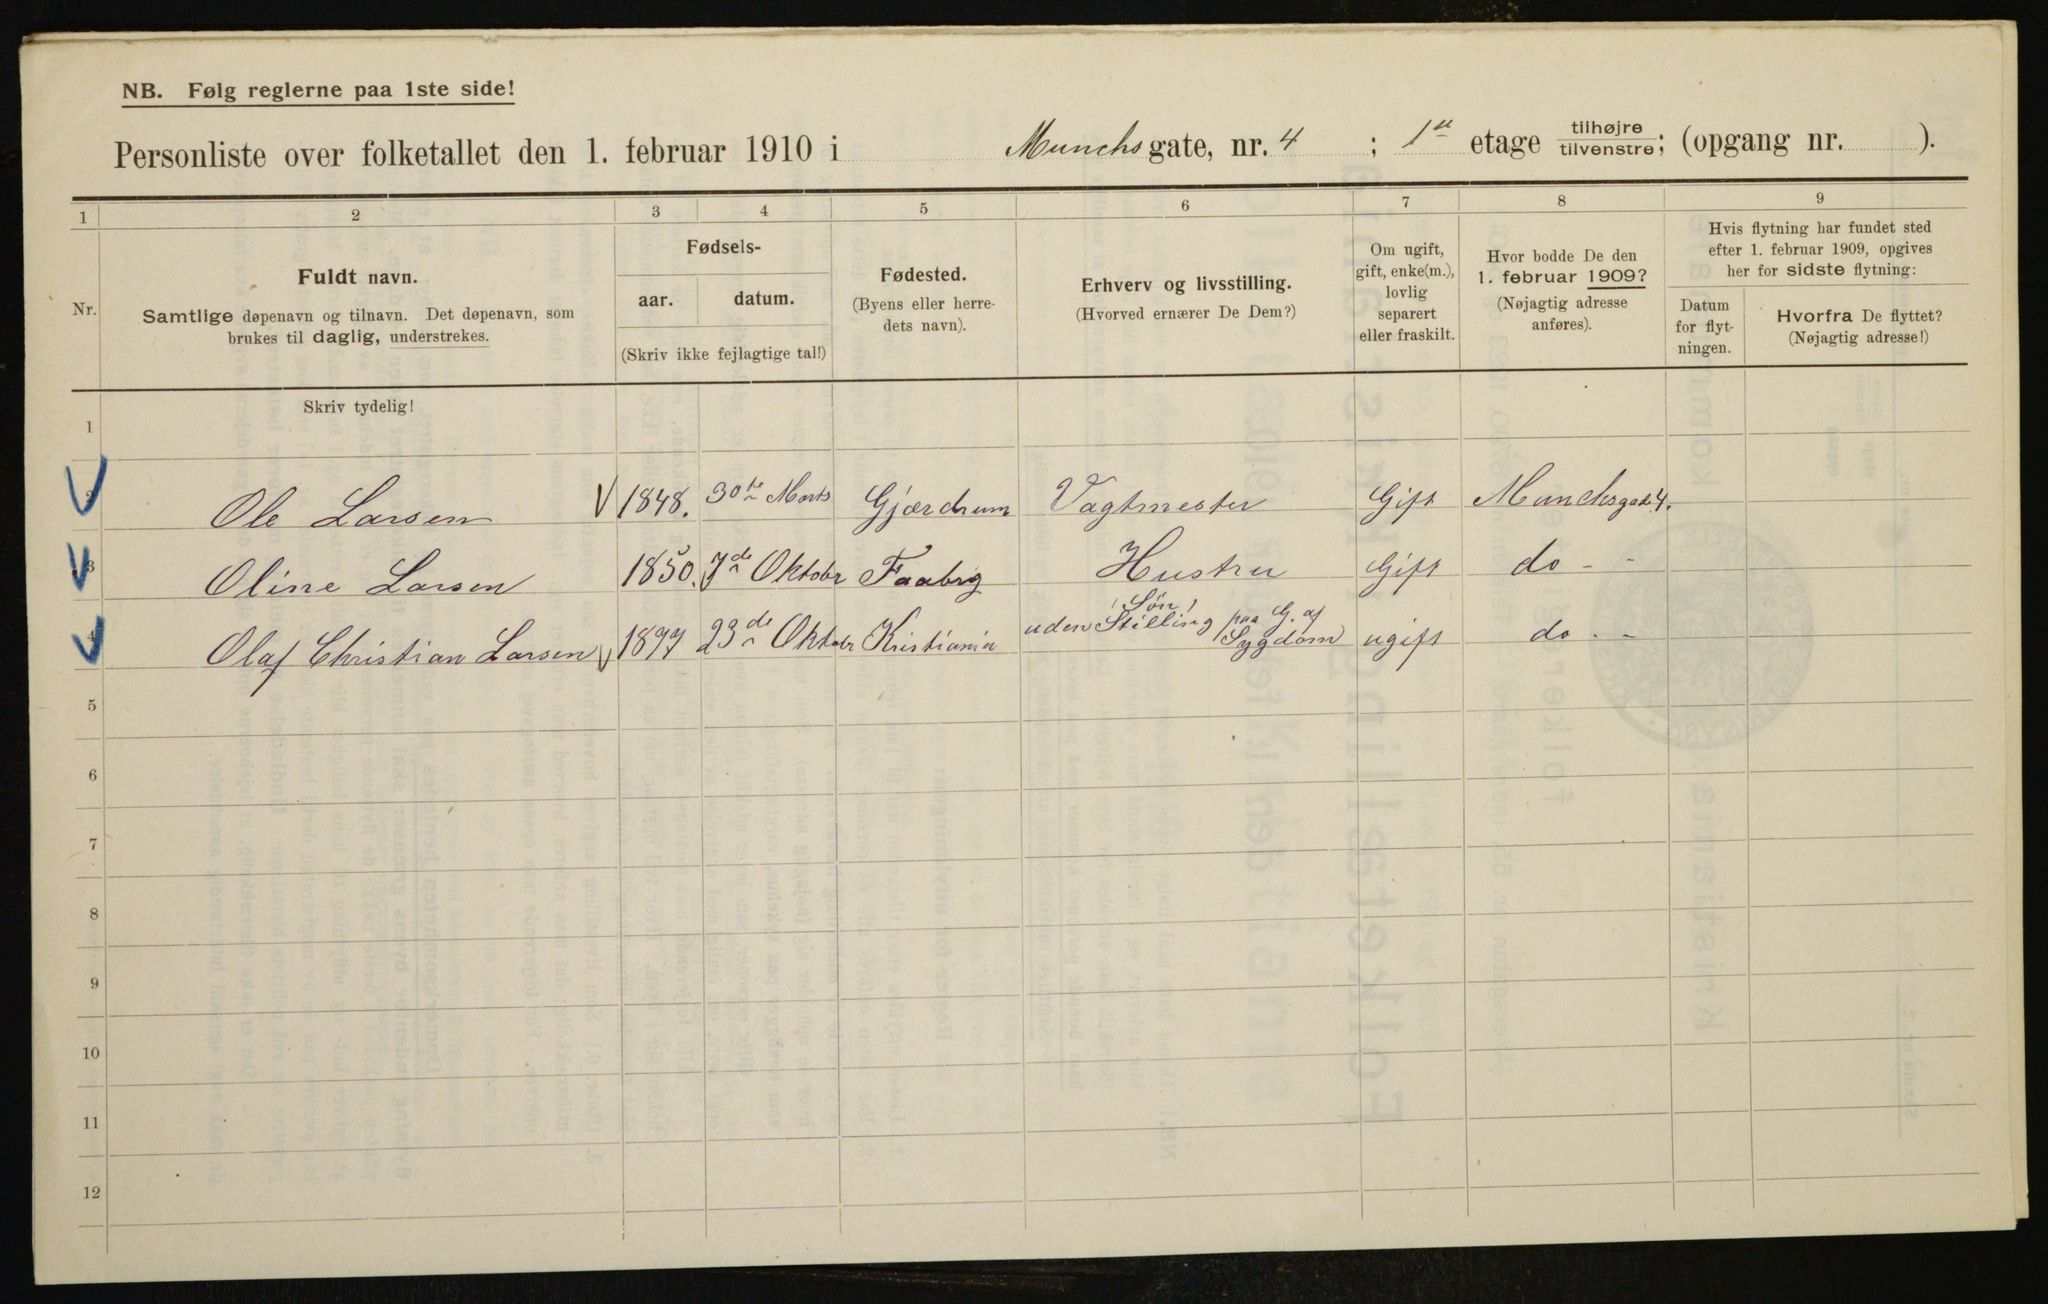 NB. Følg reglerne paa 1ste side!
Personliste over folketallet den 1. februar 1910 i Munchsgate, nr. 4 ; 1ste etage tilhøjre/tilvenstre; (opgang nr. ).
1 2 3 4 5 6 7 8 9
Nr.
Fuldt navn.
Samtlige døpenavn og tilnavn. Det døpenavn, som
brukes til daglig, understrekes.
Fødsels-
aar. datum.
(Skriv ikke fejlagtige tal!)
Fødested.
(Byens eller herre-
dets navn).
Erhverv og livsstilling.
(Hvorved ernærer De Dem?)
Om ugift,
gift, enke(m.),
lovlig
separert
eller fraskilt.
Hvor bodde De den
1. februar 1909?
(Nøjagtig adresse
anføres).
Hvis flytning har fundet sted
efter 1. februar 1909, opgives
her for sidste flytning:
Datum
for flyt-
ningen.
Hvorfra De flyttet?
(Nøjagtig adresse!)
Skriv tydelig!
1
2 Ole Larsen 1848. 30te Marts Gjærdrum Vagtmester Gift Munchsgade 4.
3 Oline Larsen 1850. 7de Oktobr Faabrg Hustru Gift do - -
4 Olaf Christian Larsen 1877 23de Oktobr Kristiania (Søn) uden Stilling paa G. af Sygdom ugift do - -
5
6
7
8
9
10
11
12